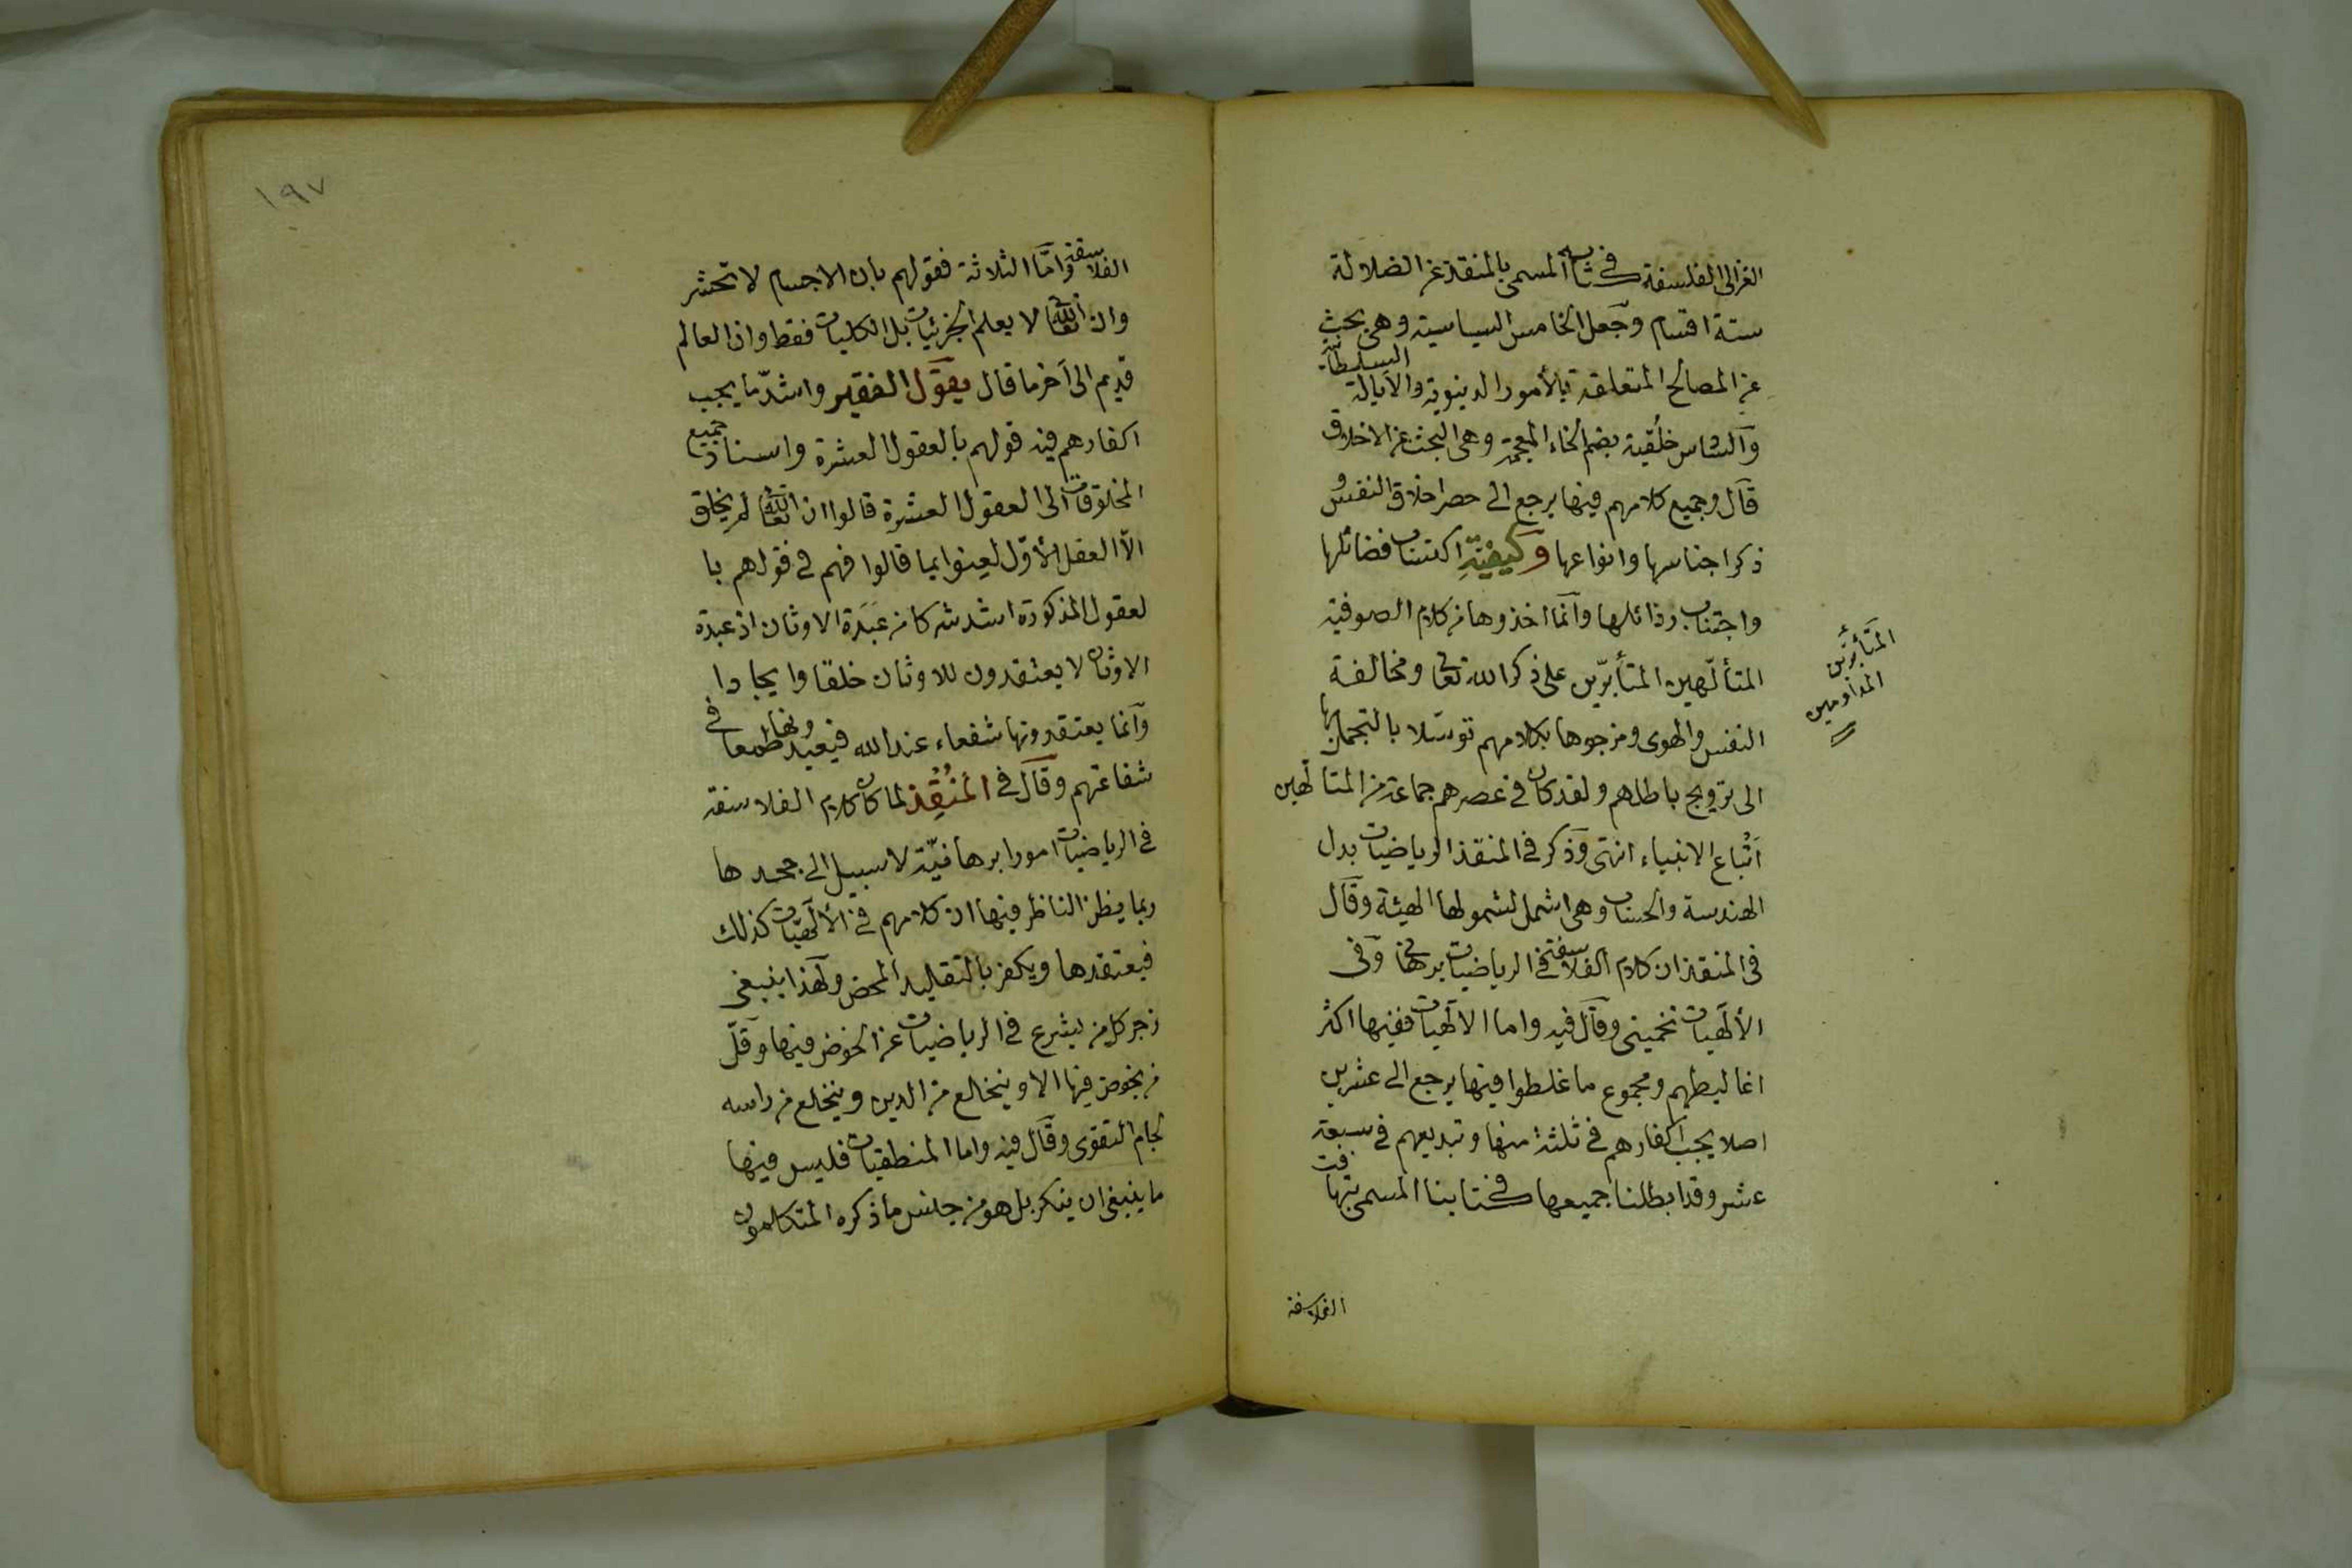 الغزالى الفلسفة فى كتابه المسمى بالمنقذ عن الضلالة
ستة اقسام وجعل الخامس السياسية وهى بحث
عن المصالح المتعلقة بالأمور الدينوية والايالة السلطانية
والسادس خلقية بضم الخاء المعجمة وهى البحث عن الاخلاق
قال وجميع كلامهم فيها يرجع الى حصر اخلاق النفس و
ذكر اجناسها وانواعها وكيفية اكتساب فضائلها
واجتناب رذائلها وانما اخذوها من كلام الصوفية
المتألّهين المتأبرّين على ذكر الله تعالى ومخالفة
النفس والهوى ومزجوها بكلامهم توسّلا بالتجمل بها
الى ترويج باطلهم ولقد كان فى عصرهم جماعة من المتألّهين
اتباع الانبياء انتهى وذكر فى المنقذ الرياضيات بدل
الهندسة والحساب وهى اشمل لشمولها الهيئة وقال
فى المنقذ ان كلام الفلاسفة فى الرياضيات برهانى وفى
الألهيات تخمينى وقال فيه واما الالهيات ففيها اكثر
اغاليطهم ومجموع ما غلطوا فيها يرجع الى عشرين
اصلا يجب اكفارهم فى ثلثة منها وتبديعهم فى سبعة
عشر وقد ابطلنا جميعها فى كتابنا المسمى بتهافت
الفلاسفة
المتأبرّين
المداومين
١٩٧
الفلاسفة وامّا الثلاثة فقولهم بان الاجسام لا تحشر
وان الله تعالى لا يعلم الجزئيات بل الكليات فقط وان العالم
قديم الى آخر ما قال يقول الفقير واشدّ ما يجب
اكفارهم فيه قولهم بالعقول العشرة واسناد جميع
المخلوقات الى العقول العشرة قالوا ان الله تعالى لم يخلق
الّا العقل الأوّل لعنوا بما قالوا فهم فى قولهم با
لعقول المذكورة اشد شركا من عَبَدَة الاوثان اذ عبدة
الاوثان لا يعتقدون للاوثان خلقا وايجادا
وانما يعتقدونها شفعاء عند الله فيعبدونها طمعا فى
شفاعتهم وقال فى المُنْقِذ لما كان كلام الفلاسفة
فى الرياضيات امورا برهانيّة لا سبيل الى جحدها
ربما يظن الناظر فيها ان كلامهم فى الألهيّات كذلك
فيعتقدها ويكفر بالتقليد المحض ولهذا ينبغى
زجر كل من يشرع فى الرياضيات عن الخوض فيها وقلّ
من يخوض فيها الا وينخلع من الدين وينخلع من راسه
لجام التقوى وقال فيه واما المنطقيات فليس فيها
ما ينبغى ان ينكر بل هو من جنس ما ذكره المتكلمون